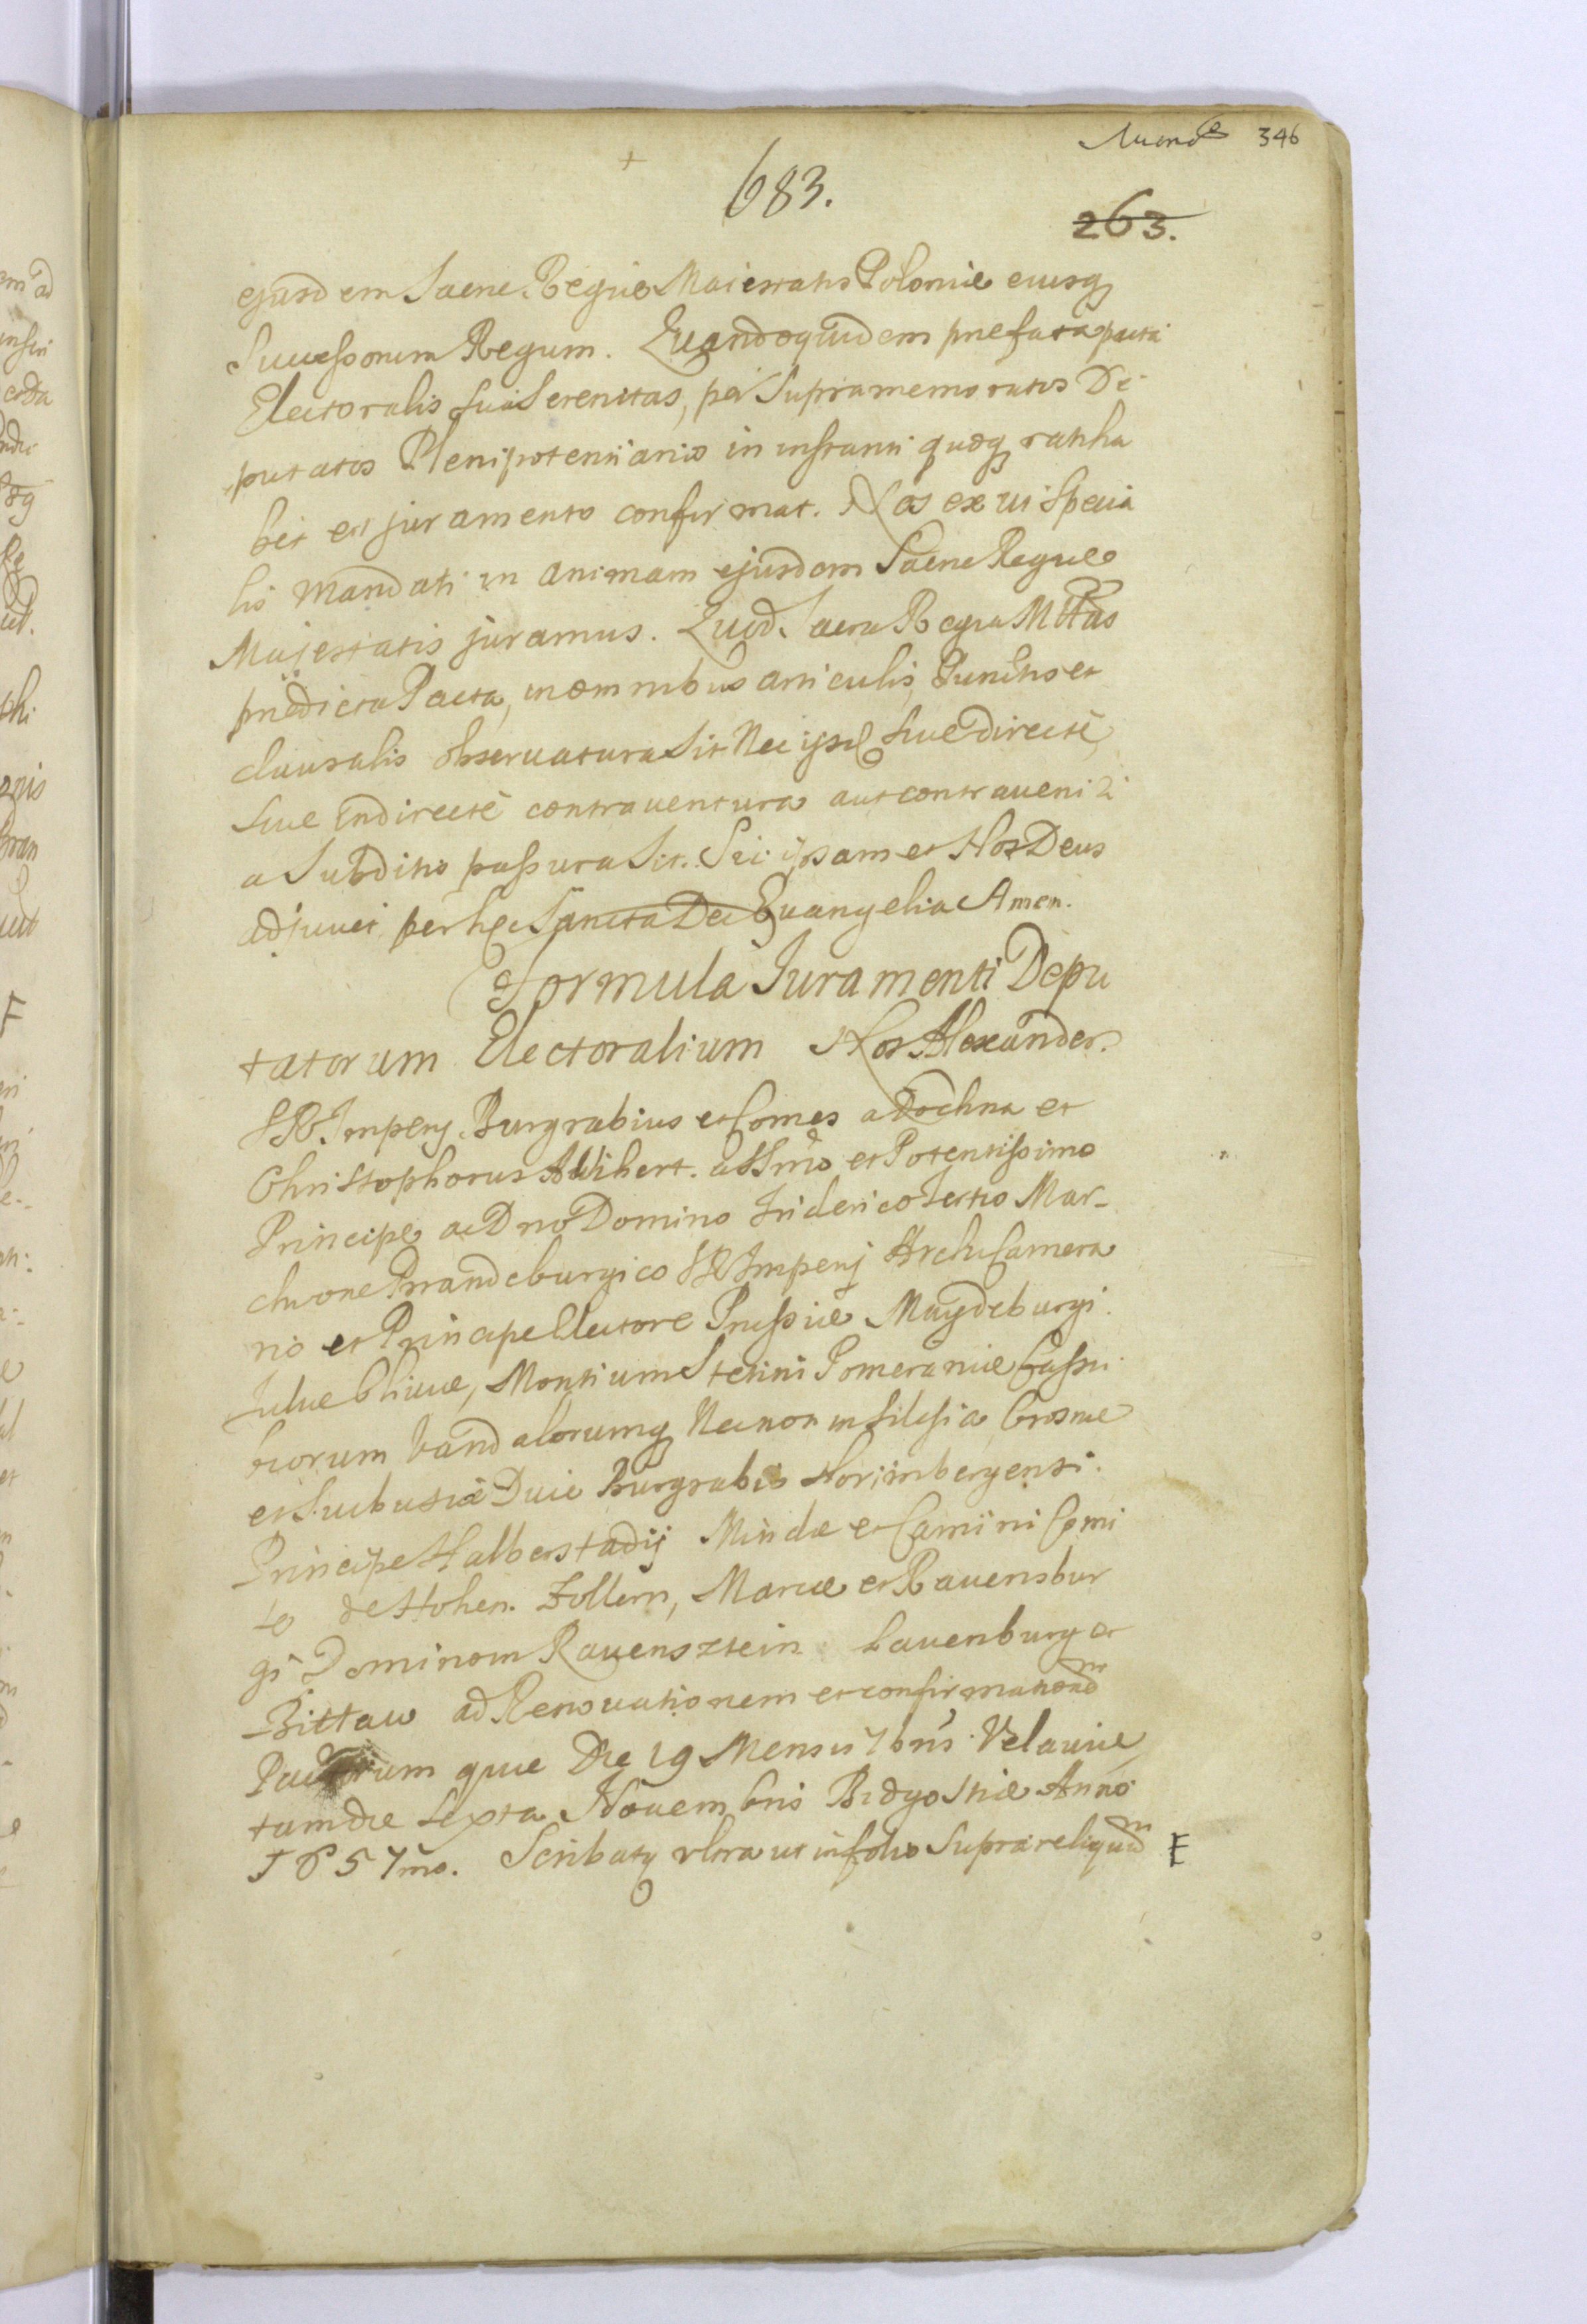 346
683.
263.
ejusdem Sacrae Regiae Maiestatis Poloniae eiusq
Successorum Regum. Quandoquidem praefata pacta
Electoralis sua Serenitas, per Supramemoratos De
putatos Plenipotentiarios in instanti quoq ratiha
bet et juramento confirmat. Nos ex vi Specia
lis mandati in animam ejusdem Sacrae Regiae
Majestatis juramus. Quod Sacra Regia Mttas
praedicta Pacta, in omnibus articulis, Punctis et
clausulis observatura sit Nec ipsa siue directe,
siue Indirecte contrauentura aut contraueniri
a Subditis passura sit. Sic ipsam et Nos Deus
adjuuet, per haec Sancta Dei Euangelia Amen.
Formula Iuramenti Depu
tatorum Electoralium Nos Alexander
S R Imperij Burgrabius et Comes a Dochna et
Christophorus Albihert. a Smo et Potentissimo
Principe ac Dno Domino Friderico Tertio Mar-
chione Brandeburgico S R Imperij Archi Camera
rio et Principe Electore Prussiae Magdeburgi.
Juliae Cliuiae, Montium Stetini Pomeraniae Cassu
biorum Vandalorumq Necnon in Silesia Crosnae
et Suibusiae Duce Burgrabio Norimbergensi.
Principe Halberstadij Mindae et Camini Comi
te de Hohen. Zollern, Marcae et Rauensbur
gi Dominom Ravensztein Lauenburg et
Bittaw ad Renouationem et confirmationem
Pactorum quae Die 19 Mensis 7bris Velauiae
tum die Sexta Nouembris Bidgostiae Anno
1657mo. Scribatq vltra ut in folio Supra reliquum F